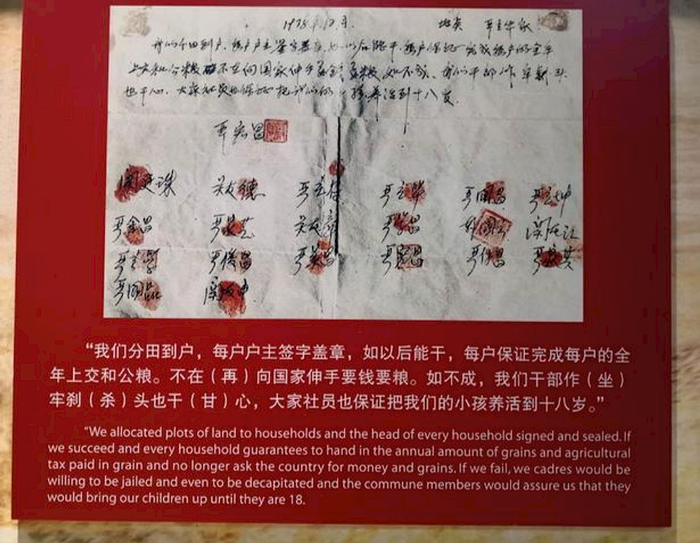 1978.12月. 地点 严立华家
我们分田到户,每户户主签字盖章,如以后能干,每户保证完成每户的全年
上交和公粮,不在向国家伸手要钱要粮,如不成,我们干部作牢刹头
也干心,大家社员也保证把我们的小孩养活到十八岁.
严宏昌
关廷珠 关友德 严立符 严立华 严国昌 严立坤
严金昌 关友江
严立学 严俊昌 严美昌
严国品 关友申
“我们分田到户，每户户主签字盖章，如以后能干，每户保证完成每户的全
年上交和公粮。不在（再）向国家伸手要钱要粮。如不成，我们干部作（坐）
牢刹（杀）头也干（甘）心，大家社员也保证把我们的小孩养活到十八岁。”
“We allocated plots of land to households and the head of every household signed and sealed. If
we succeed and every household guarantees to hand in the annual amount of grains and agricultural
tax paid in grain and no longer ask the country for money and grains. If we fail, we cadres would be
willing to be jailed and even to be decapitated and the commune members would assure us that they
would bring our children up until they are 18.